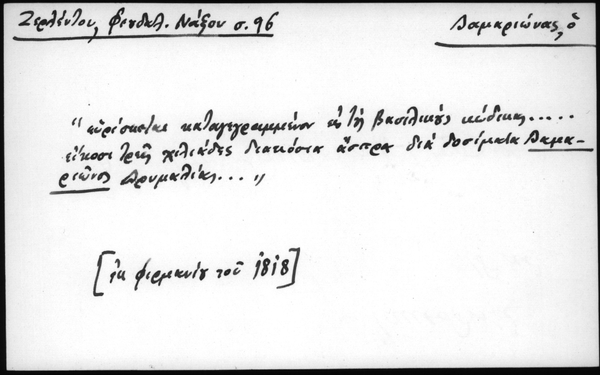 Ζερλέντου, Φεουδαλ. Νάξου σ. 96
Δαμαριώνας, ὁ
“ εὑρίσκεται καταγεγραμμένον ἐν τῇ βασιλικῇς κώδικας.....
εἴκοσι τρεῖς χιλιάδες διακόσια ἄσπρα διὰ δοσίματα Δαμα-
ριῶνος Δρυμαλίας... „
[ἐκ φιρμανίου τοῦ 1818]